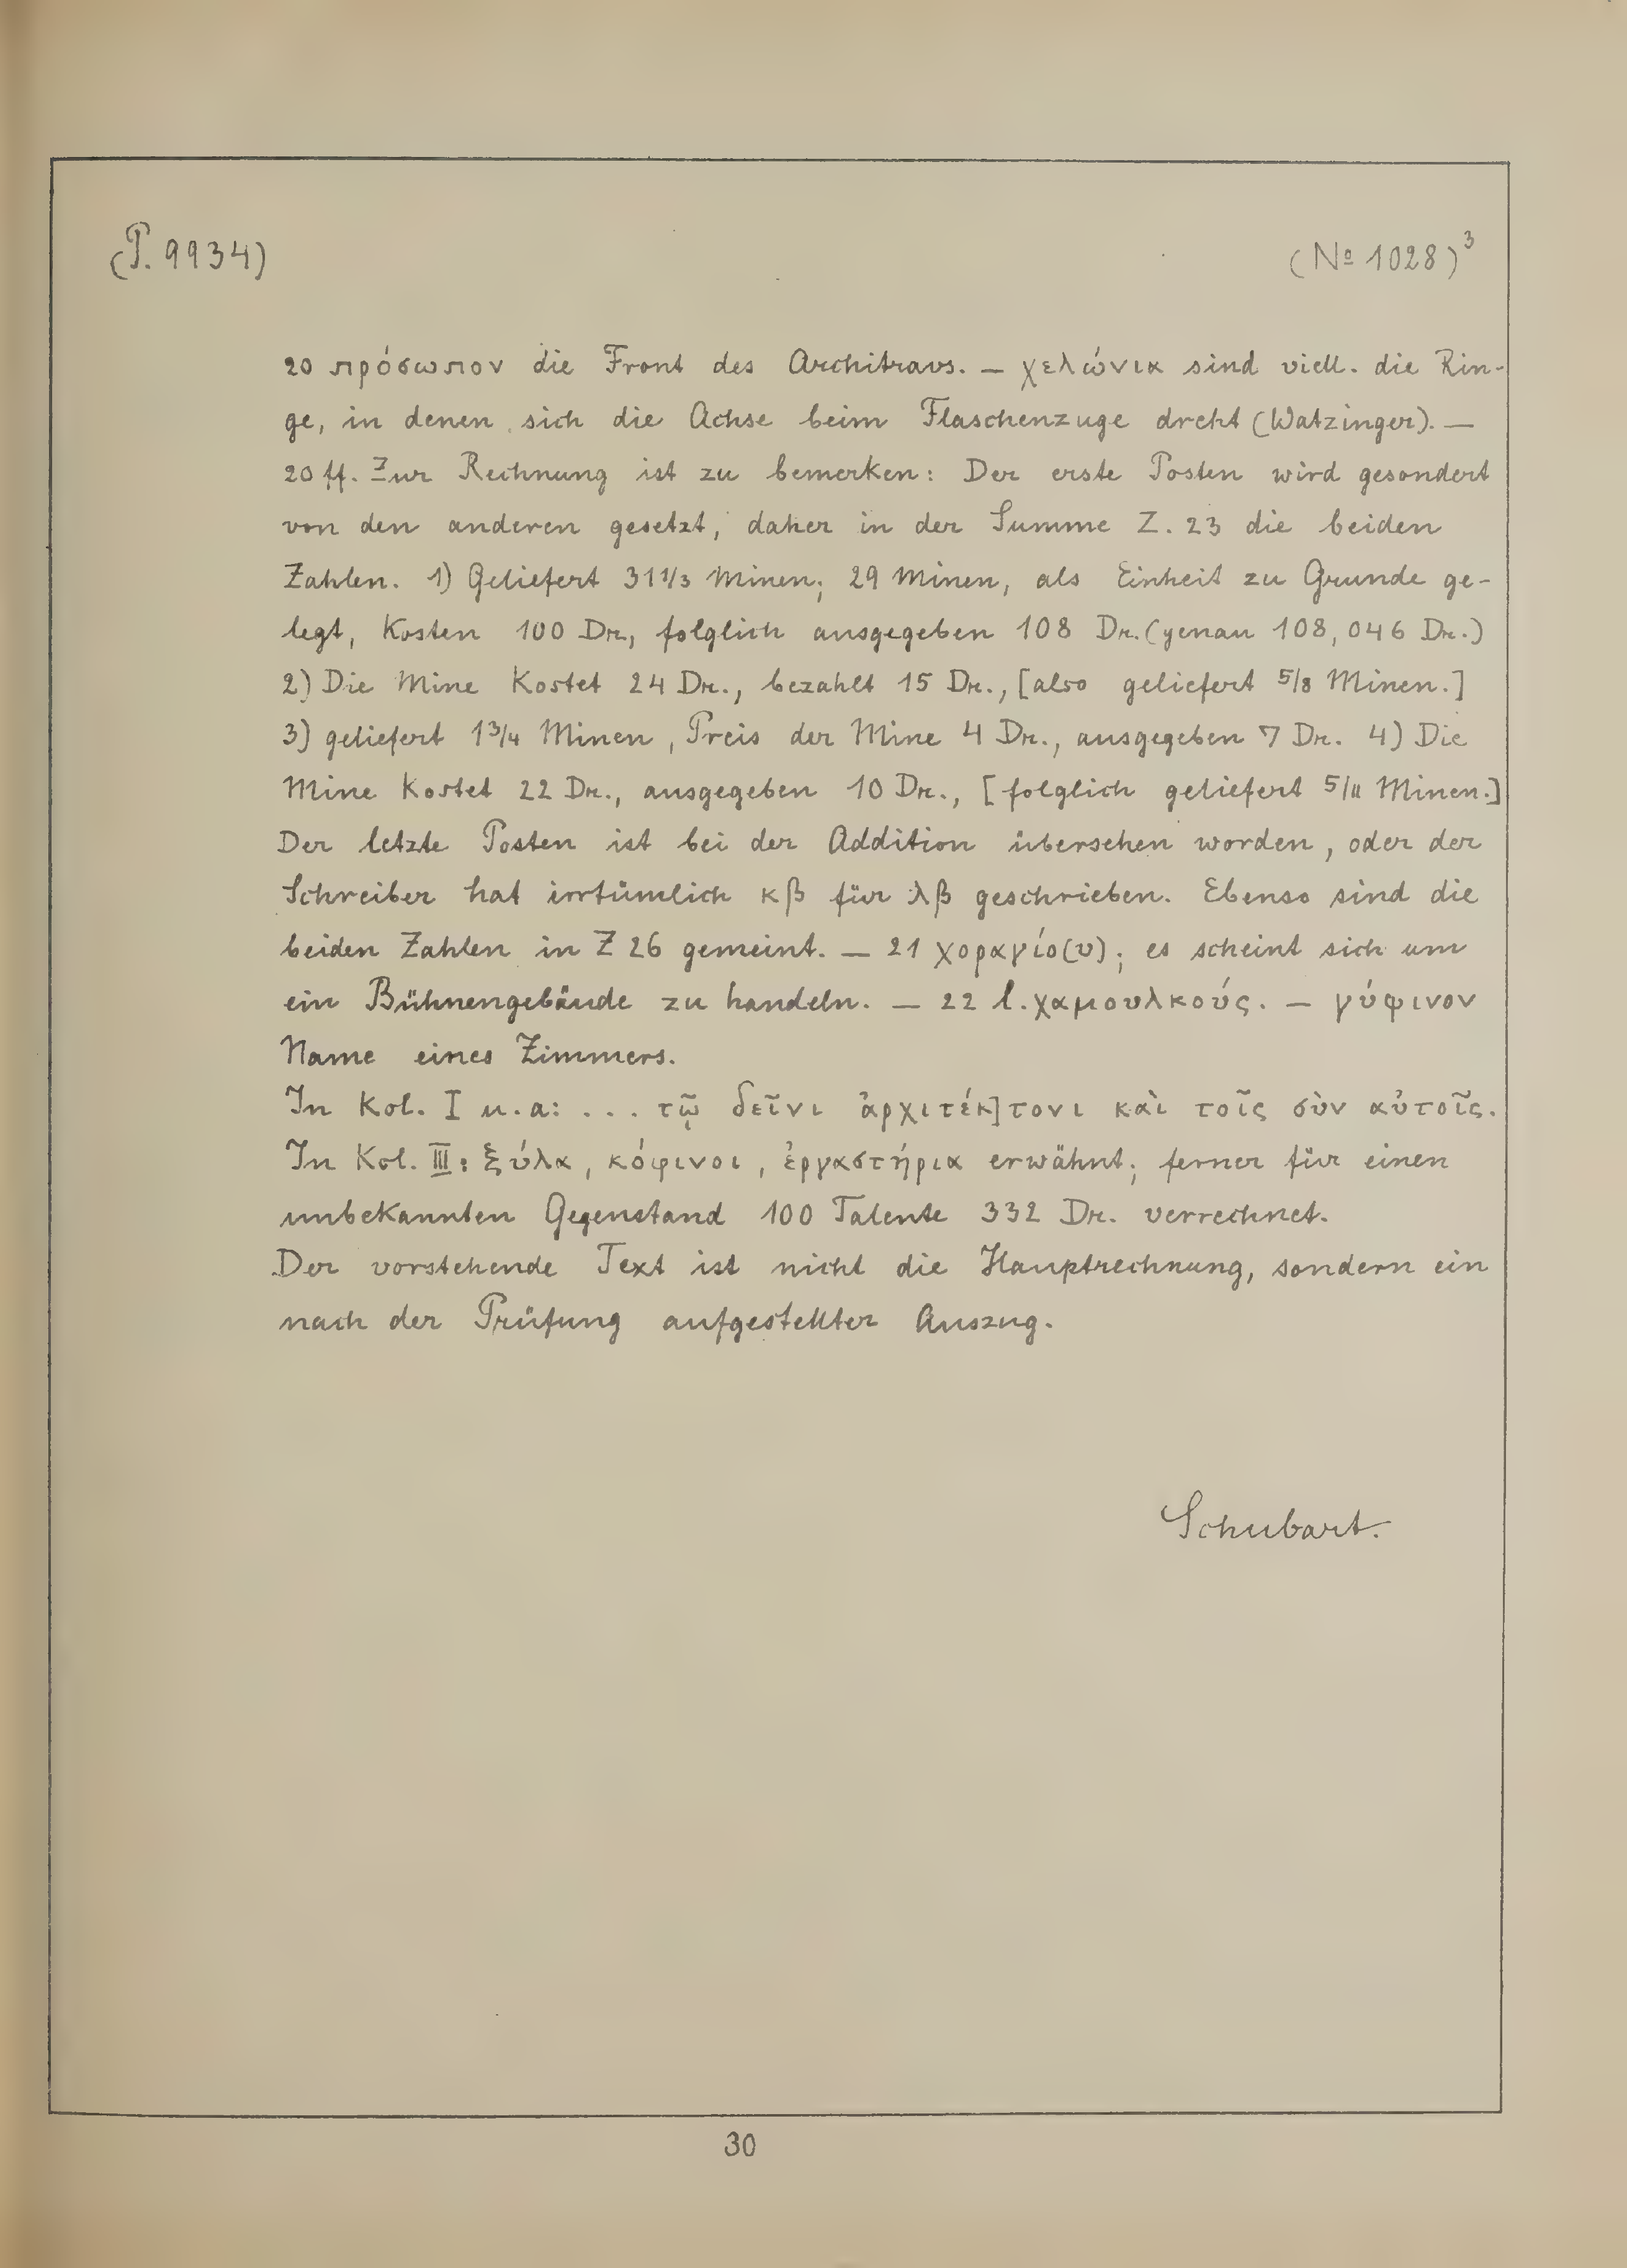 (P. 9934) (No 1028)³
20 πρόσωπον die Front des Architravs. — χελώνια sind viell. die Rin-
ge, in denen sich die Achse beim Flaschenzuge dreht (Watzinger). —
20 ff. Zur Rechnung ist zu bemerken: Der erste Posten wird gesondert
von den anderen gesetzt, daher in der Summe Z. 23 die beiden
Zahlen. 1) Geliefert 31 1/3 Minen; 29 Minen, als Einheit zu Grunde ge-
legt, kosten 100 Dr., folglich ausgegeben 108 Dr. (genau 108,046 Dr.)
2) Die Mine kostet 24 Dr., bezahlt 15 Dr., [also geliefert 5/8 Minen.]
3) geliefert 1 3/4 Minen, Preis der Mine 4 Dr., ausgegeben 7 Dr. 4) Die
Mine kostet 22 Dr., ausgegeben 10 Dr., [folglich geliefert 5/11 Minen.]
Der letzte Posten ist bei der Addition übersehen worden, oder der
Schreiber hat irrtümlich κβ für λβ geschrieben. Ebenso sind die
beiden Zahlen in Z 26 gemeint. — 21 χοραγίο(υ); es scheint sich um
ein Bühnengebäude zu handeln. — 22 l. χαμουλκούς. — γύψινον
Name eines Zimmers.
In Kol. I u. a: ... τῷ δεῖνι ἀρχιτέκ]τονι καὶ τοῖς σὺν αὐτοῖς.
In Kol. III: ξύλα, κόφινοι, ἐργαστήρια erwähnt; ferner für einen
unbekannten Gegenstand 100 Talente 332 Dr. verrechnet.
Der vorstehende Text ist nicht die Hauptrechnung, sondern ein
nach der Prüfung aufgestellter Auszug.
Schubart.
30